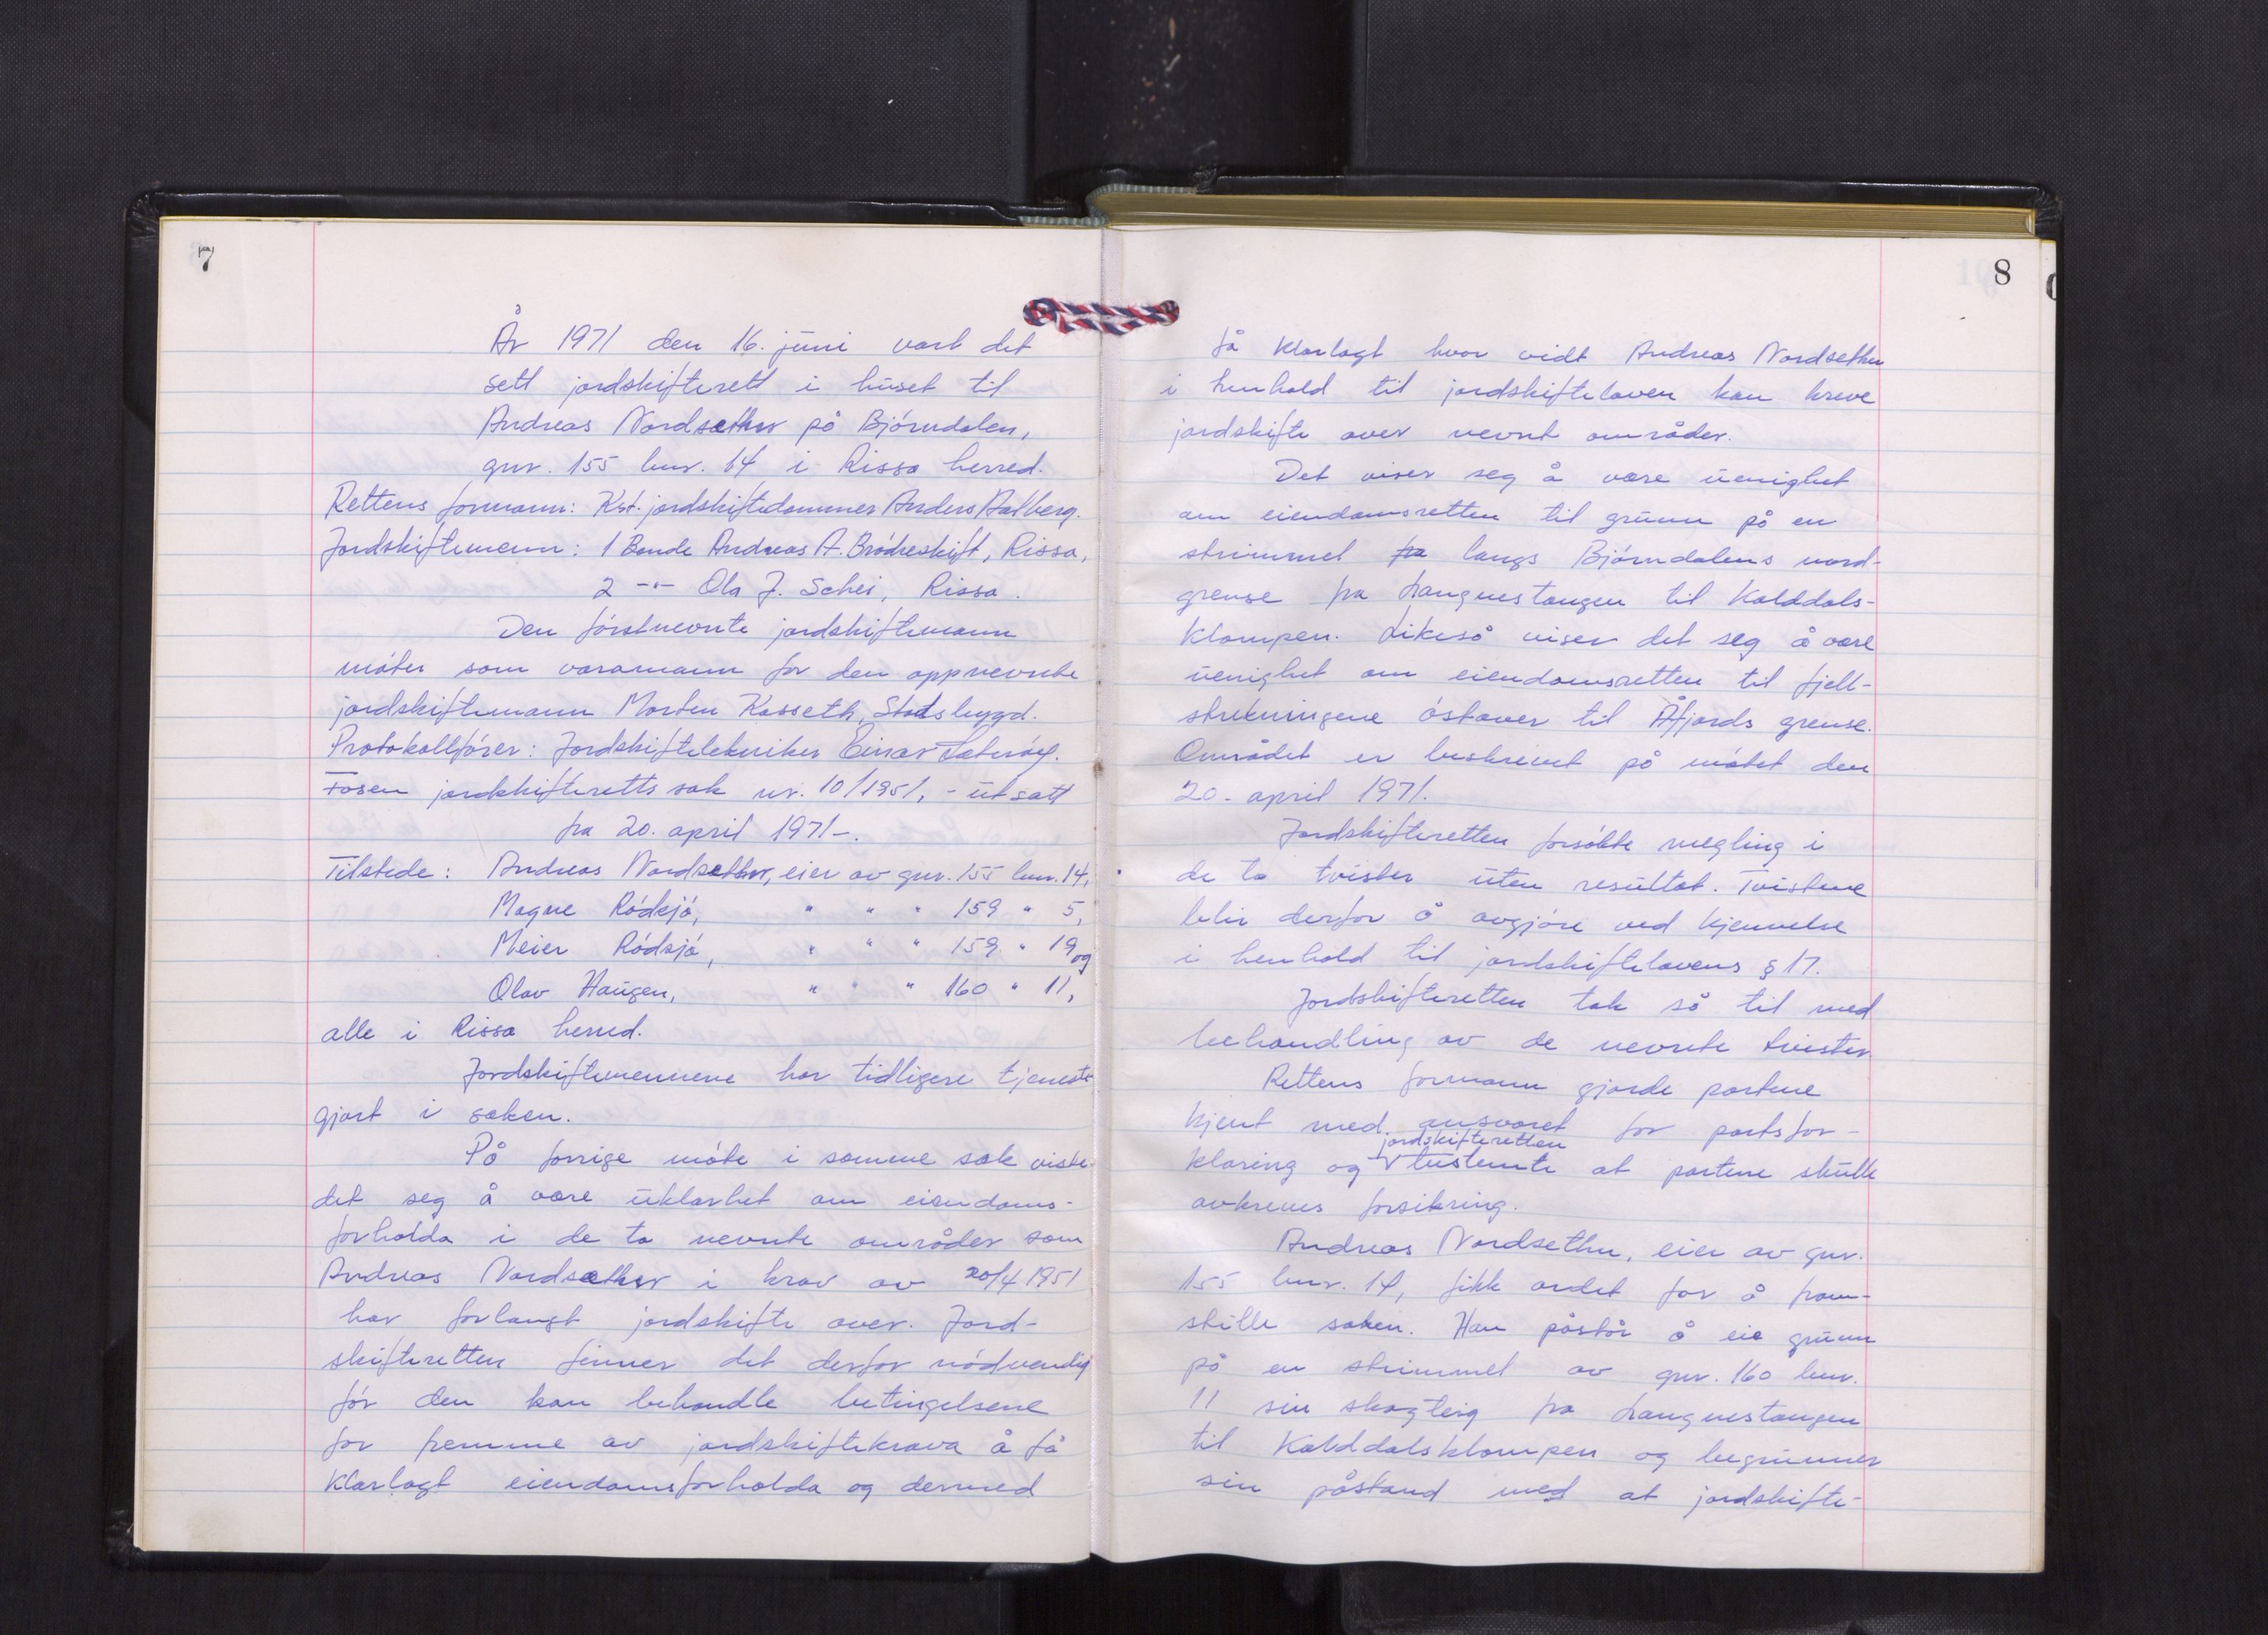 7
År 1971 den 16. juni vart det
sett jordskifterett i huset til
Andreas Nordsether på Bjørndalen,
gnr. 155 bnr. 14 i Rissa herred.
Rettens formann: Kst. jordskiftedommer Anders Aalberg.
Jordskiftemenn: 1 Bonde Andreas A. Brødreskift, Rissa,
2 -"- Ola J. Schei, Rissa.
Den førstnevnte jordskiftemann
møter som varamann for den oppnevnte
jordskiftemann Morten Kasseth, Stadsbygd.
Protokollfører: Jordskiftetekniker Einar
Fosen jordskifteretts sak nr. 10/1951, - utsatt
fra 20. april 1971-.
Tilstede: Andreas Nordsether, eier av gnr. 155 bnr. 14,
Magne Rødsjø, " " " 159 " 5,
Meier Rødsjø, " " " 159 " 19 og
Olav Haugen, " " " 160 " 11,
alle i Rissa herred.
Jordskiftemennene har tidligere tjeneste
gjort i saken.
På forrige møte i samme sak viste
det seg å være uklarhet om eiendoms-
forholda i de to nevnte områder som
Andreas Nordsether i krav av 20/4 1951
har forlangt jordskifte over. Jord-
skifteretten finner det derfor nødvendig
før den kan behandle betingelsene
for fremme av jordskiftekrava å få
klarlagt eiendomsforholda og dermed
8
få klarlagt hvor vidt Andreas Nordsether
i henhold til jordskifteloven kan kreve
jordskifte over nevnt områder.
Det viser seg å være uenighet
om eiendomsretten til grunn på en
strimmel fra langs Bjørndalens nord-
grense fra Langnestangen til Kalddals-
klompen. Likeså viser det seg å være
uenighet om eiendomsretten til fjell-
strekningene østover til Åfjords grense.
Området er beskrevet på møtet den
20. april 1971.
Jordskifteretten forsøkte megling i
de to tvister uten resultat. Tvistene
blir derfor å avgjøre ved kjennelse
i henhold til jordskiftelovens § 17.
Jordskifteretten tok så til med
behandling av de nevnte tvister.
Rettens formann gjorde partene
kjent med ansvaret for partsfor-
klaring og jordskifteretten bestemte at partene skulle
avkreves forsikring.
Andreas Nordsether, eier av gnr.
155 bnr. 14, fikk ordet for å fram-
stille saken. Han påstår å eie grunn
på en strimmel av gnr. 160 bnr.
11 sin skogteig fra Langnestangen
til Kalddalsklompen og begrunner
sin påstand med at jordskifte-